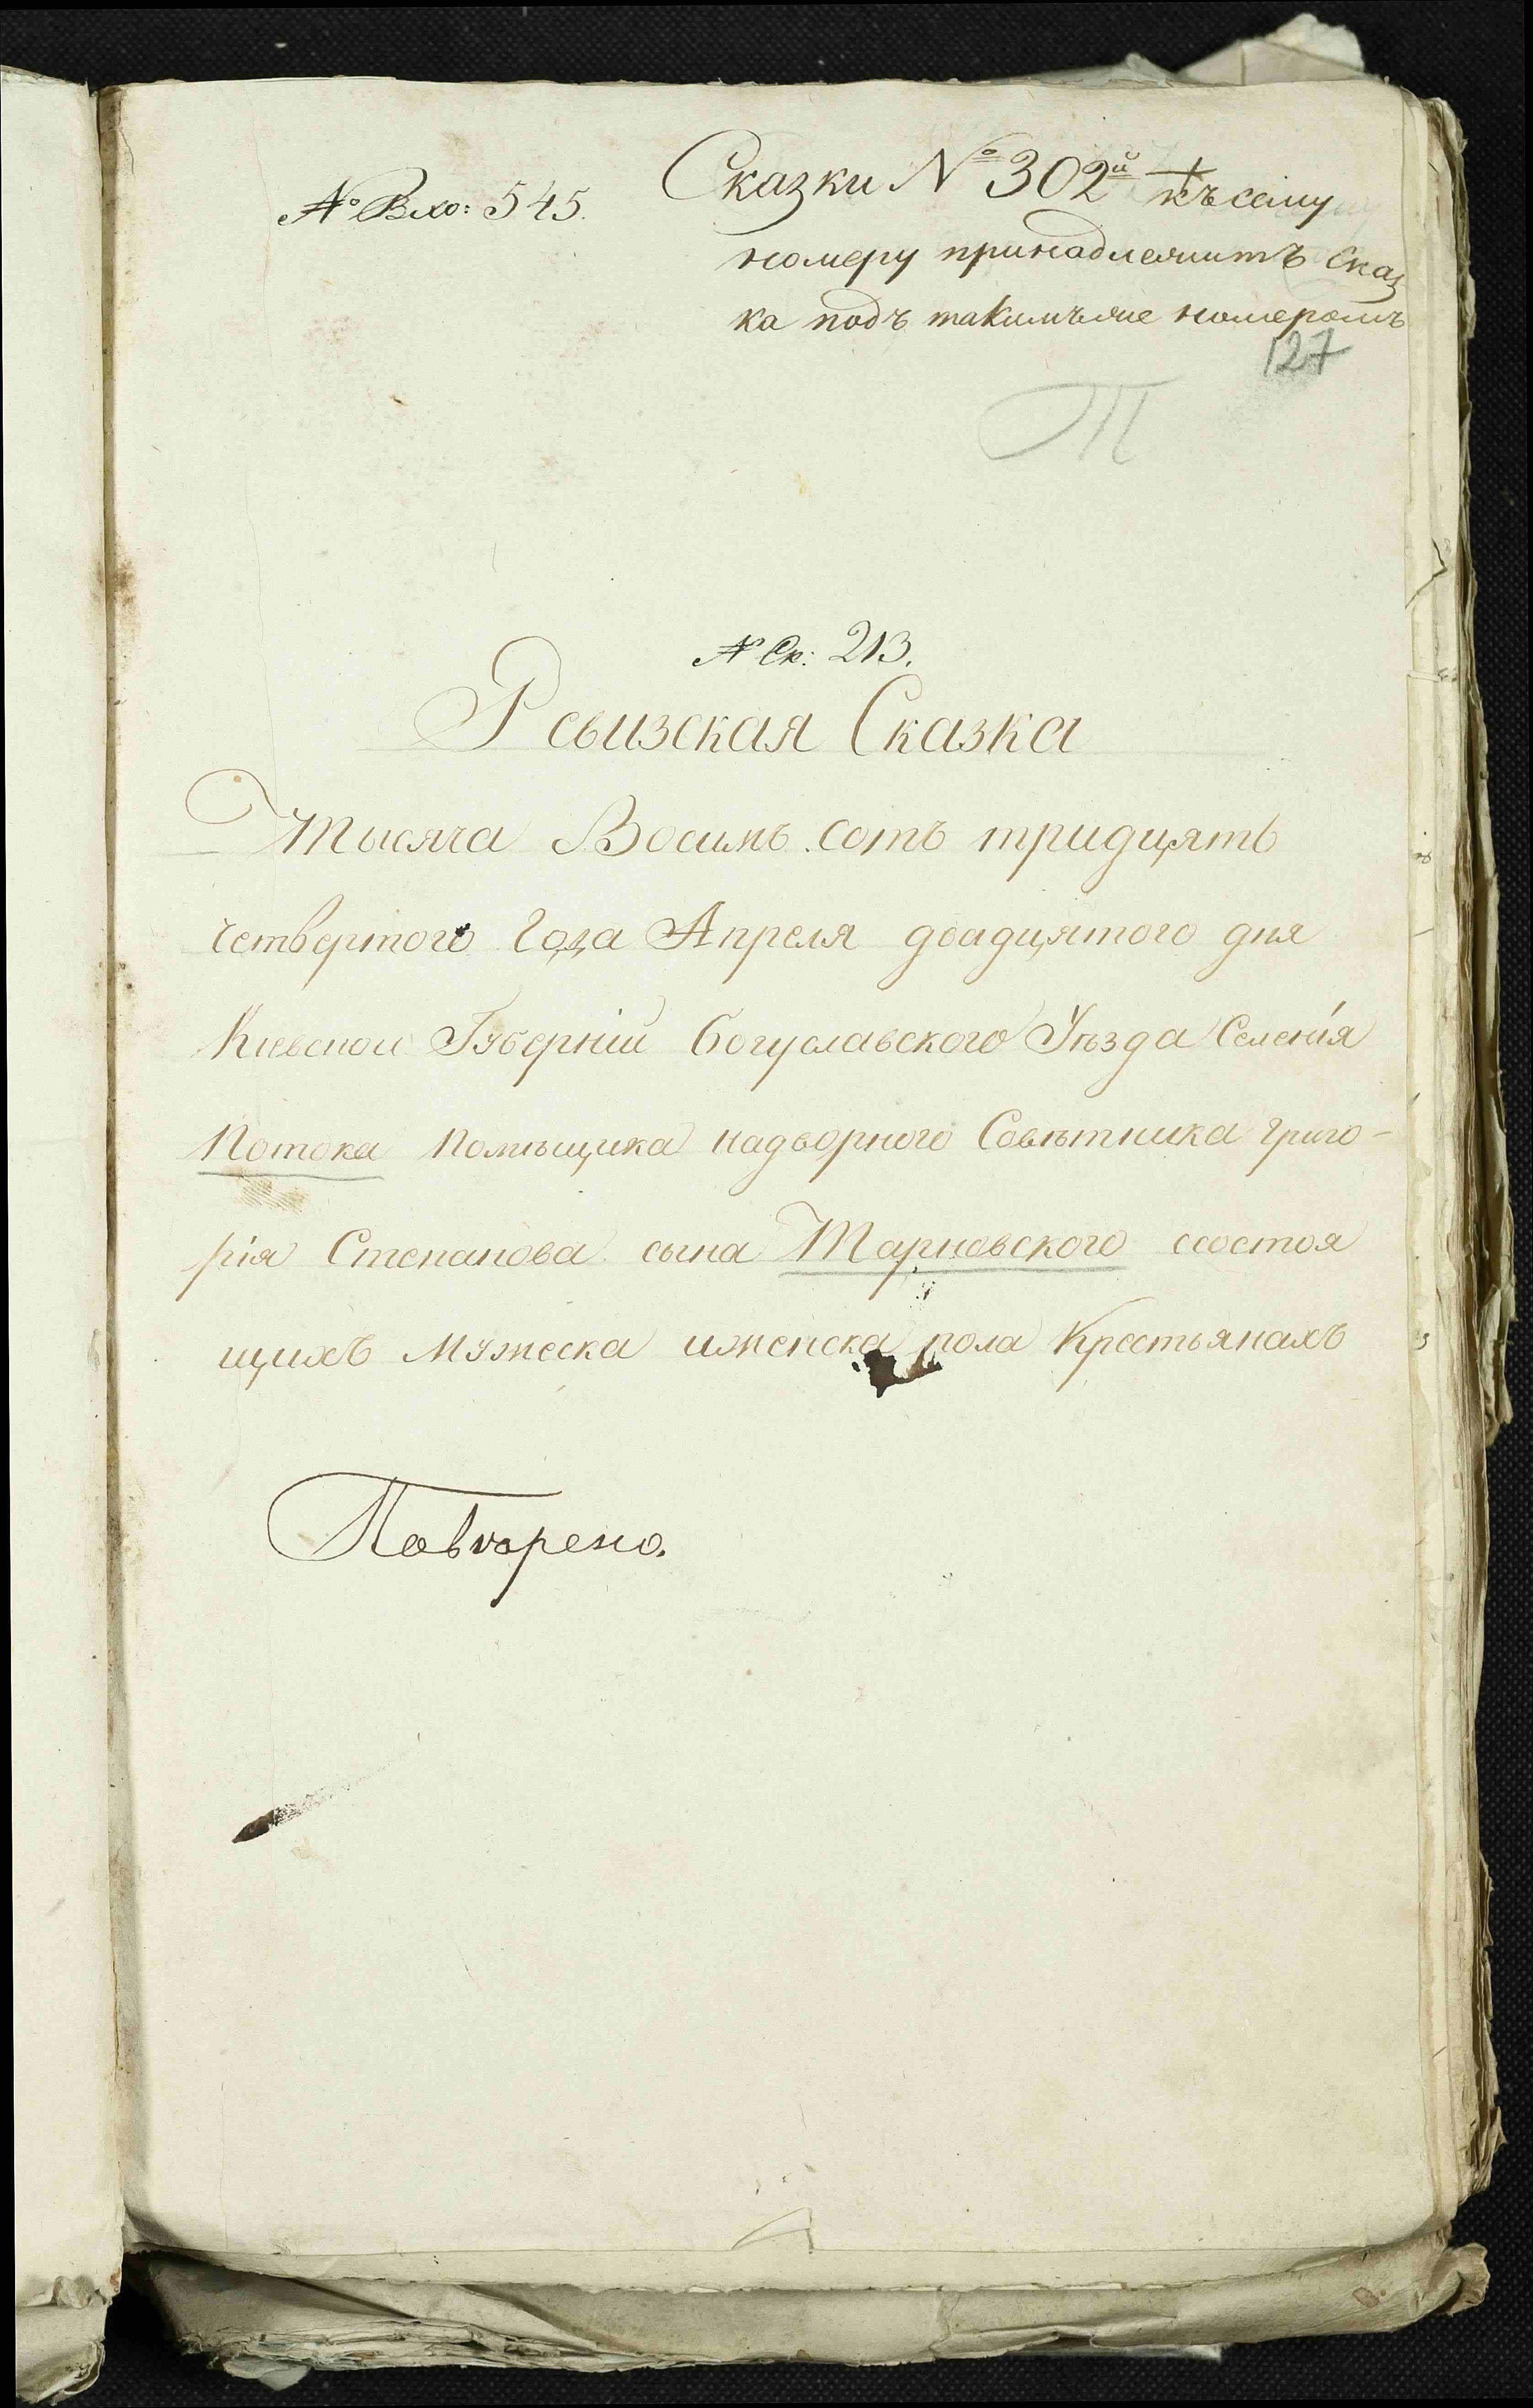 № Вхо: 545.
Сказки № 302й къ сему
номеру принадлежитъ сказ
ка подъ такимъ же номеромъ
127
Т
№ Ск: 213.
Ревизская Сказка
Тысяча Восимь сотъ тридцять
четвертого Года Апреля двадцятого дня
Киевской Губерніи Богуславского Уѣзда Селенія
Потока Помѣщика надворного Совѣтника Григо-
рія Степанова сына Тарновского состоя
щихъ Мужеска иженска пола Крестьянахъ
Повторено.